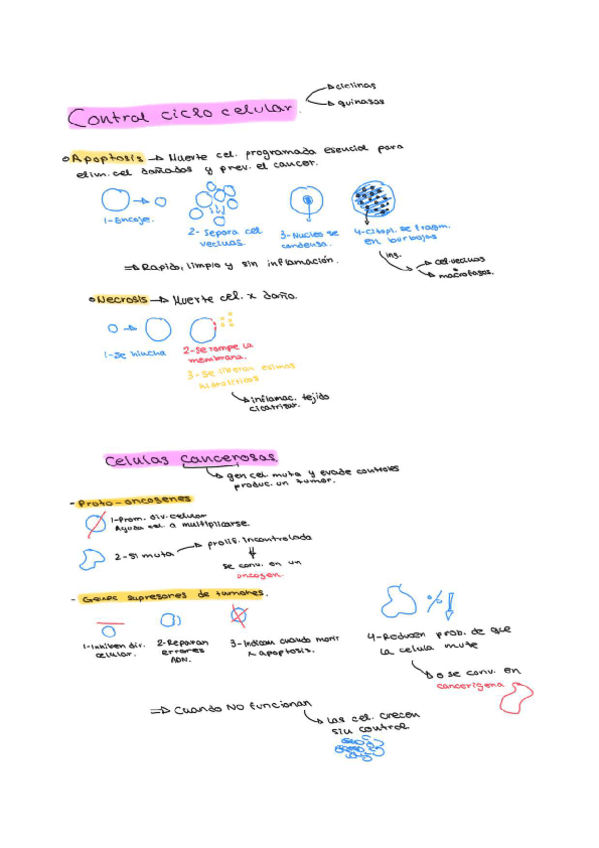 Control ciclo celular.
ciclinas
quinasas
Apoptosis → Muerte cel. programada esencial para
elim. cel dañadas y prev. el cancer.
1-Encoje.
2- Separa cel
vecinas.
3-Nucleo se
condensa.
4-Citopl. se fragm.
en burbujas
ing.
cel. vecinas
macrofagos.
⇒ Rapido, limpio y sin inflamación.
Necrosis → Muerte cel. x daño.
1-Se hincha
2-Se rompe la
membrana.
3-Se liberan enzimas
hidroliticas
inflamac. tejido
cicatrizar.
Celulas cancerosas.
gen cel. muta y evade controles
produc. un tumor.
- Proto-oncogenes
1-Prom. div. celular
Ayuda cel. a multiplicarse.
2-Si muta → prolif. incontrolada
se conv. en un
oncogen.
- Genes supresores de tumores.
1-Inhiben div.
celular.
2-Reparan
errores
ADN.
3-Indican cuando morir
x apoptosis.
%
4-Reducen prob. de que
la celula mute
o se conv. en
cancerigena
⇒ Cuando NO funcionan
Las cel. crecen
sin control.